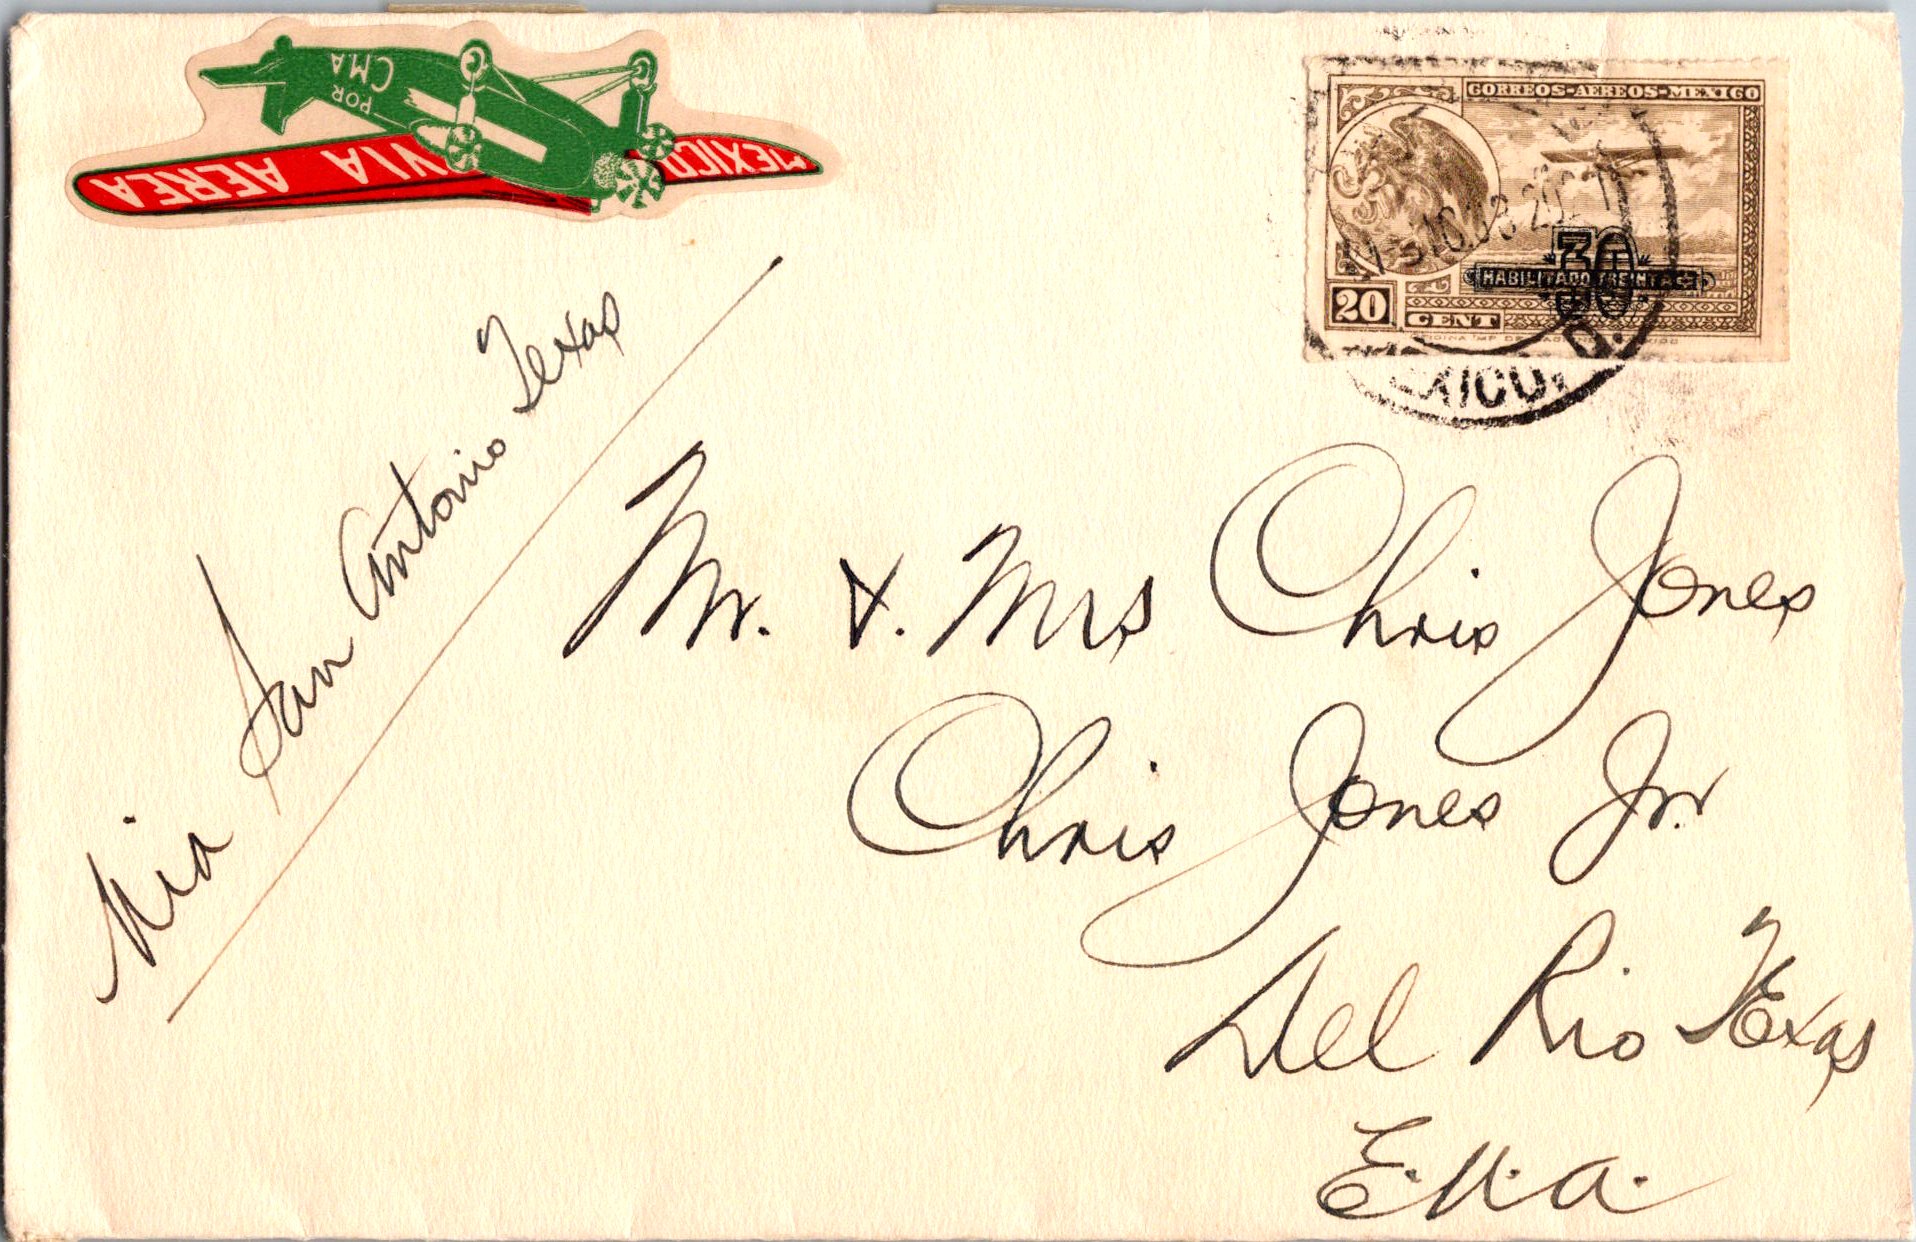 MEXICO VIA AEREA
POR
CMA
CORREOS-AEREOS-MEXICO
30
HABILITADO TREINTA CS
20
CENT
MEXICO, D.
Via San Antonio Texas
Mr. & Mrs Chris Jones
Chris Jones Jr.
Del Rio Texas
E.U.A.